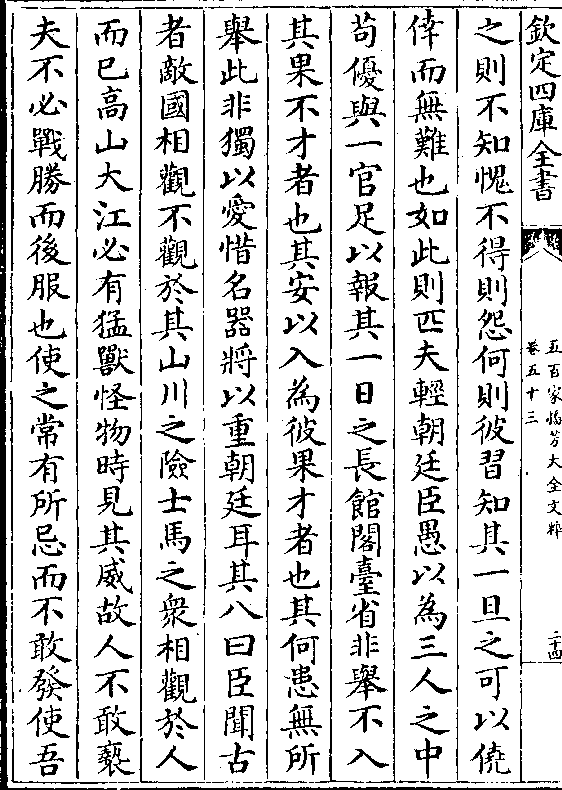 欽定四庫全書
五百家播芳大全文粹
卷五十三
二十四
之則不知愧不得則怨何則彼習知其一旦之可以僥
倖而無難也如此則匹夫輕朝廷臣愚以為三人之中
苟優與一官足以報其一日之長館閣臺省非舉不入
其果不才者也其安以入為彼果才者也其何患無所
舉此非獨以愛惜名器將以重朝廷耳其八曰臣聞古
者敵國相觀不觀於其山川之險士馬之衆相觀於人
而已高山大江必有猛獸怪物時見其威故人不敢褻
夫不必戰勝而後服也使之常有所忌而不敢發使吾